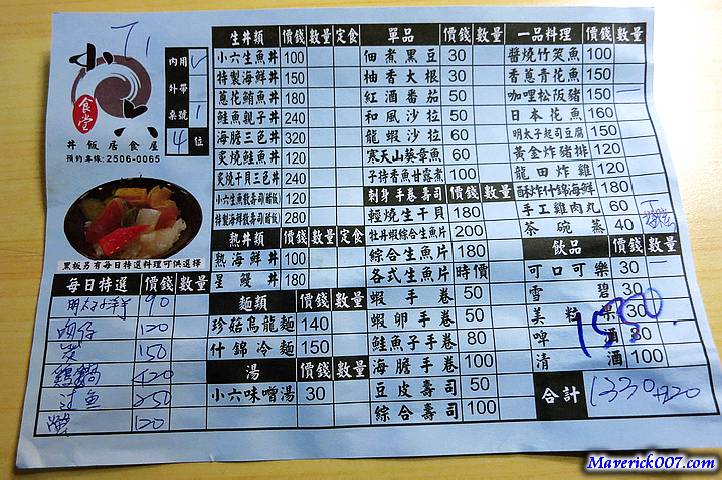 小六
食堂
丼飯居食屋
預約專線:2506-0065
內用 V
外帶
桌號 1
4 位
生丼類 價錢 數量 定食
小六生魚丼 100
特製海鮮丼 150
蔥花鮪魚丼 180
鮭魚親子丼 240
海膽三色丼 320
炙燒鮭魚丼 120
炙燒干貝三色丼 240
小六生魚散壽司(醋飯) 120
特製海鮮散壽司(醋飯) 280
熟丼類 價錢 數量 定食
熟海鮮丼 100
星鰻丼 180
麵類 價錢 數量
珍菇烏龍麵 140
什錦冷麵 150
湯 價錢 數量
小六味噌湯 30
單品 價錢 數量
佃煮黑豆 30
柚香大根 30
紅酒番茄 50
和風沙拉 50
龍蝦沙拉 60
寒天山葵章魚 60
子持香魚甘露煮 100
刺身手卷壽司 價錢 數量
輕燒生干貝 180
牡丹蝦綜合生魚片 200
綜合生魚片 180
各式生魚片 時價
蝦手卷 50
蝦卵手卷 50
鮭魚子手卷 80
海膽手卷 100
豆皮壽司 50
綜合壽司 100
一品料理 價錢 數量
醬燒竹筴魚 100
香蔥青花魚 150
咖哩松阪豬 150
日本花魚 160
明太子起司豆腐 150
黃金炸豬排 120
龍田炸雞 120
酥炸什錦海鮮 180
手工雞肉丸 60
茶碗蒸 40
飲品 價錢 數量
可口可樂 30
雪碧 30
美粒果 30
啤酒 80
清酒 100
合計 1330+220
1550
黑板另有每日特選料理可供選擇
每日特選 價錢 數量
90
120
150
420
250
120
Maverick007.com